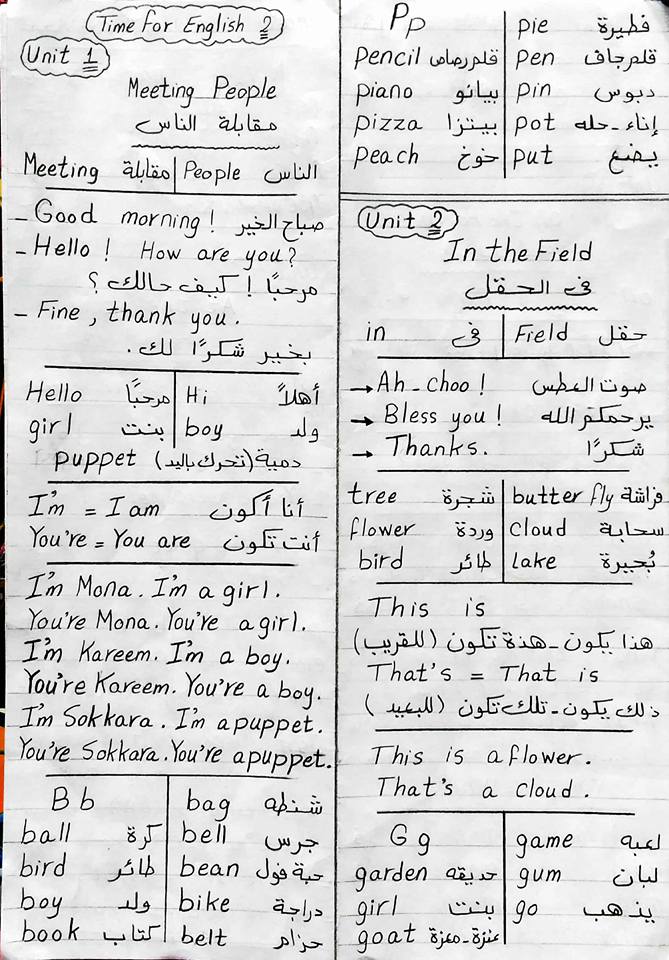 Time for English 2
Unit 1
Meeting People
مقابلة الناس
Meeting مقابلة People الناس
- Good morning! صباح الخير
- Hello! How are you?
مرحبًا! كيف حالك؟
- Fine, thank you.
بخير شكرًا لك.
Hello مرحبًا Hi أهلاً
girl بنت boy ولد
puppet دمية (تتحرك باليد)
I'm = I am أنا أكون
You're = You are أنت تكون
I'm Mona. I'm a girl.
You're Mona. You're a girl.
I'm Kareem. I'm a boy.
You're Kareem. You're a boy.
I'm Sokkara. I'm a puppet.
You're Sokkara. You're a puppet.
B b bag شنطه
ball كرة bell جرس
bird طائر bean حبة فول
boy ولد bike دراجة
book كتاب belt حزام
Pp pie فطيرة
pencil قلم رصاص pen قلم جاف
piano بيانو pin دبوس
pizza بيتزا pot إناء - حله
peach خوخ put يضع
Unit 2
In the Field
فى الحقل
in فى Field حقل
→ Ah-choo! صوت العطس
→ Bless you! يرحمكم الله
→ Thanks. شكرًا
tree شجرة butterfly فراشة
flower وردة cloud سحابة
bird طائر lake بُحيرة
This is
هذا يكون - هذة تكون (للقريب)
That's = That is
ذلك يكون - تلك تكون (للبعيد)
This is a flower.
That's a cloud.
G g game لعبه
garden حديقه gum لبان
girl بنت go يذهب
goat عنزة - معزة